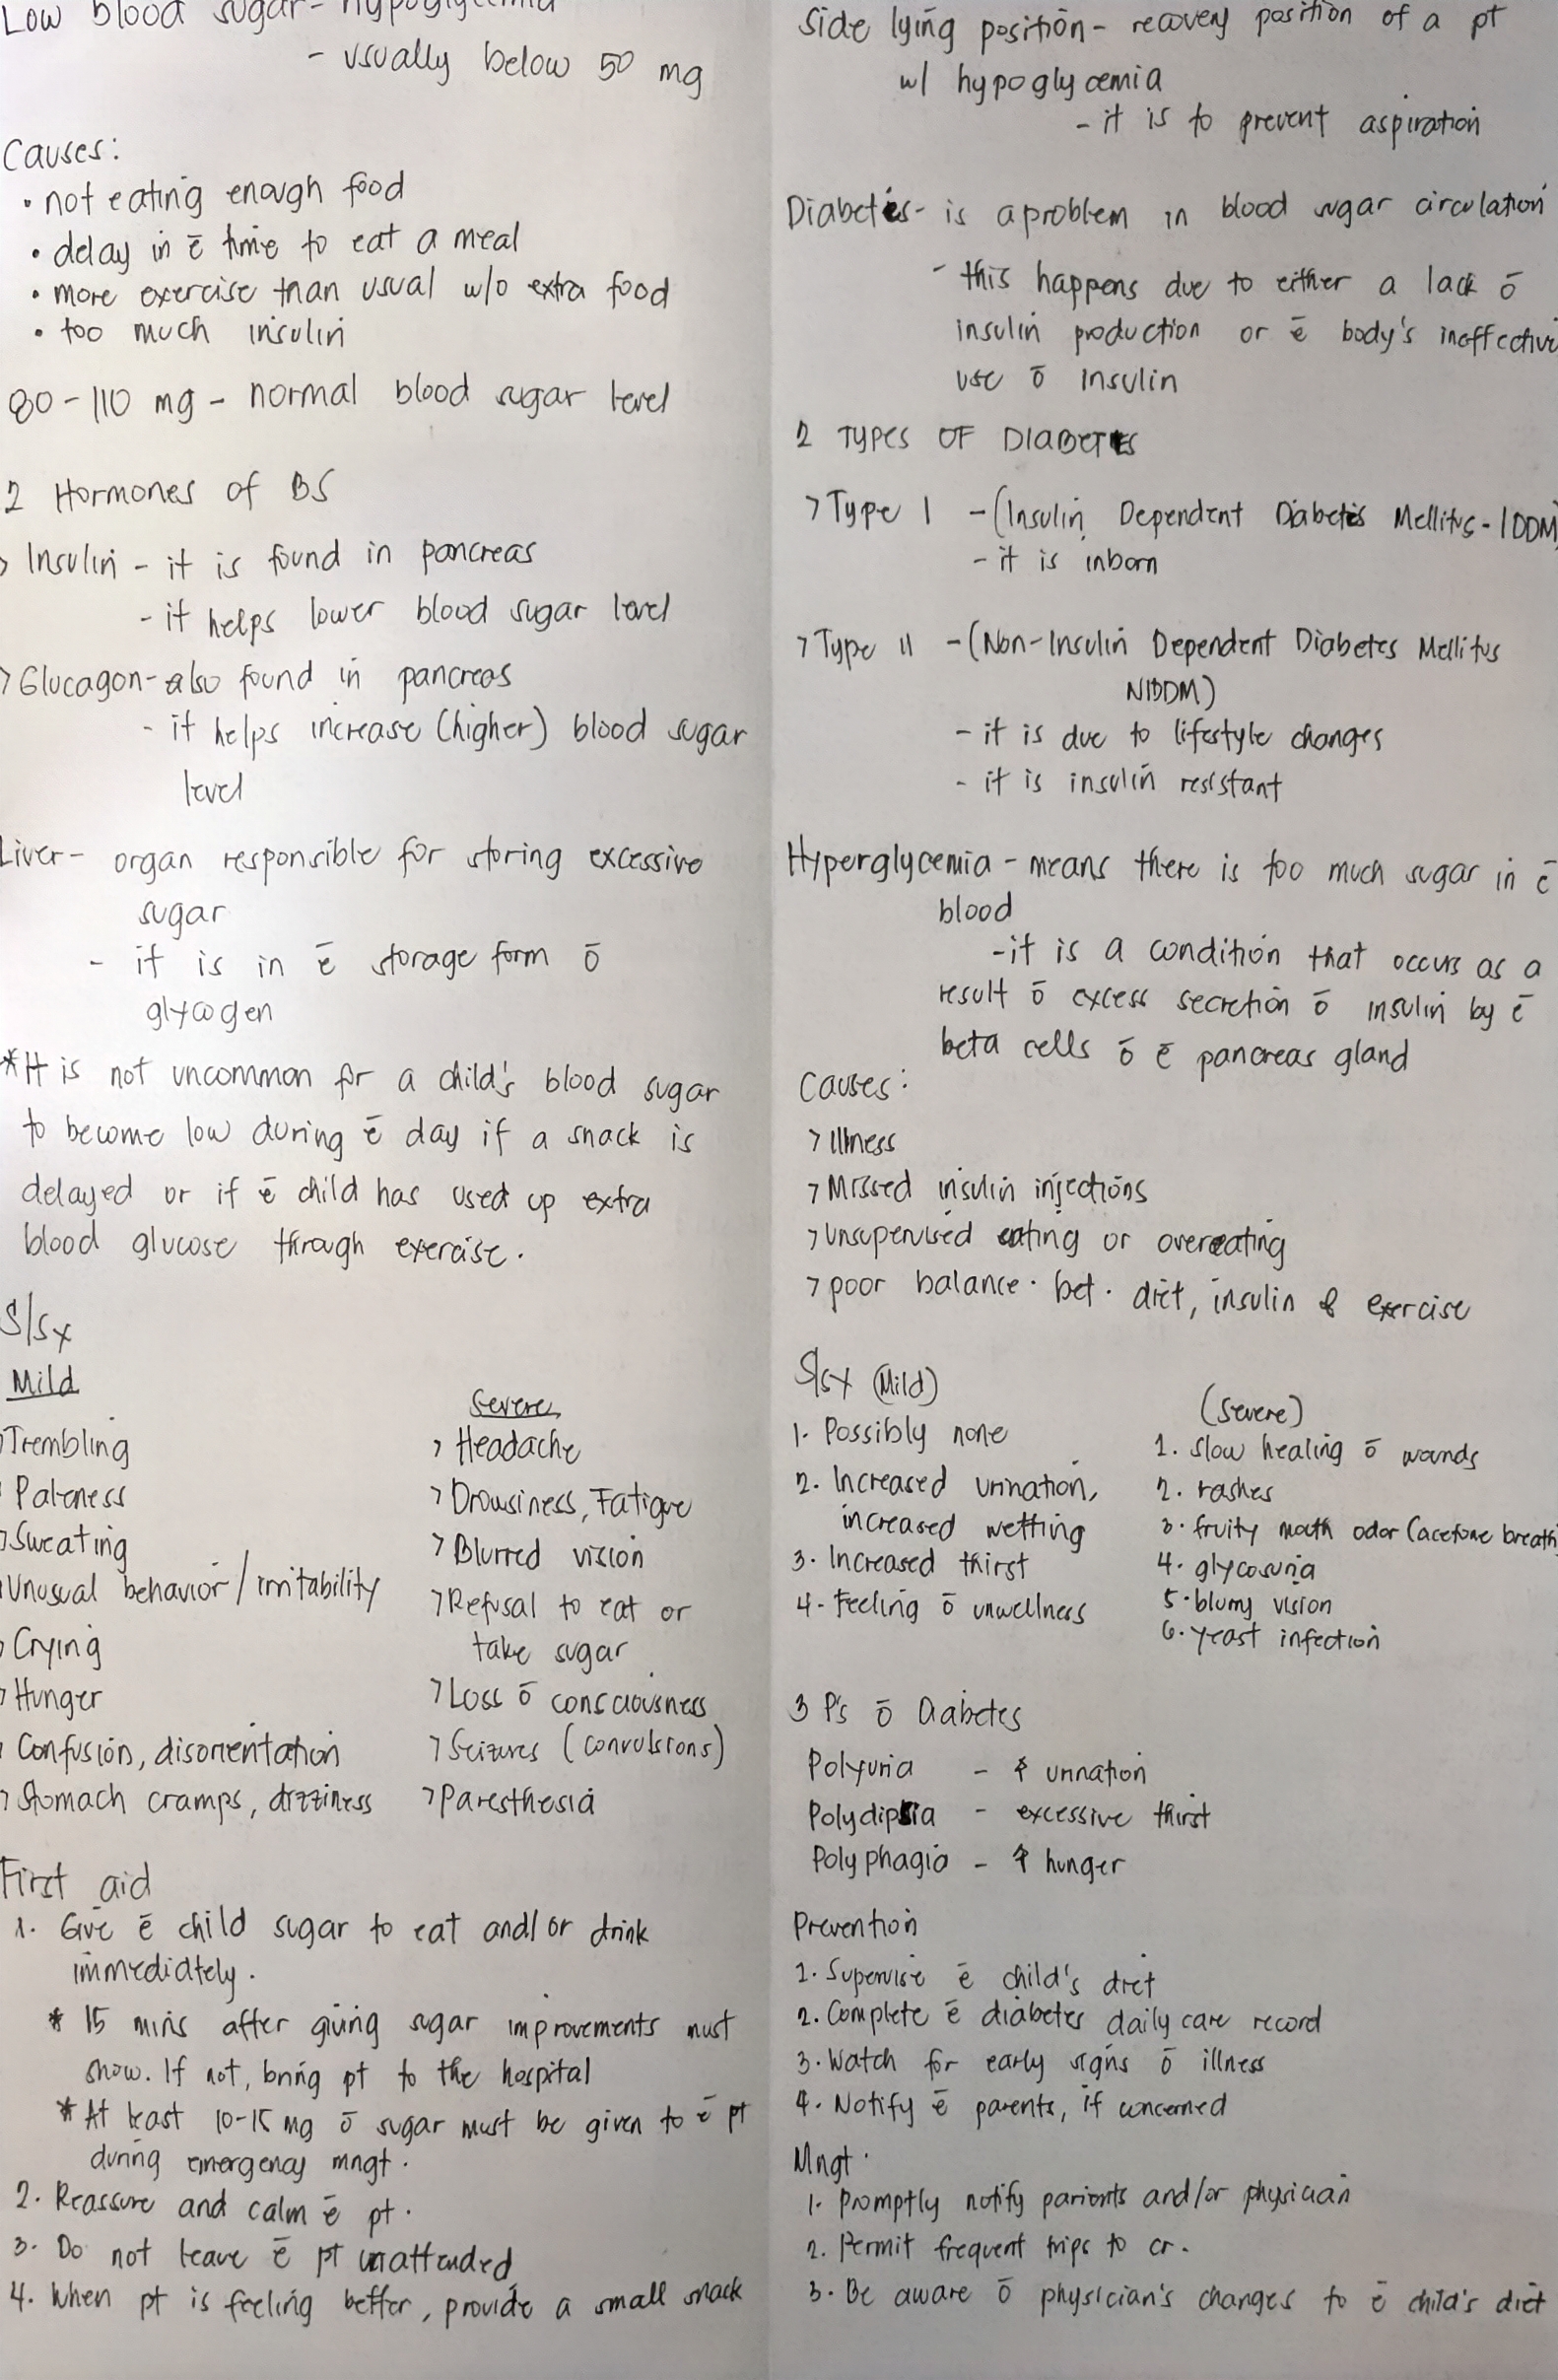 Low blood sugar- hypoglycemia
- usually below 50 mg
Causes:
• not eating enough food
• delay in ē time to eat a meal
• more exercise than usual w/o extra food
• too much insulin
80-110 mg - normal blood sugar level
2 Hormones of BS
> Insulin - it is found in pancreas
- it helps lower blood sugar level
> Glucagon- also found in pancreas
- it helps increase (higher) blood sugar
level
Liver- organ responsible for storing excessive
sugar
- it is in ē storage form ō
glycogen
*It is not uncommon for a child's blood sugar
to become low during ē day if a snack is
delayed or if ē child has used up extra
blood glucose through exercise.
S/sx
Mild
> Trembling
> Paleness
> Sweating
> Unusual behavior/irritability
> Crying
> Hunger
> Confusion, disorientation
> Stomach cramps, dizziness
Severe
> Headache
> Drowsiness, Fatigue
> Blurred vision
> Refusal to eat or
take sugar
> Loss ō consciousness
> Seizures (convulsions)
> Paresthesia
First aid
1. Give ē child sugar to eat and/or drink
immediately.
* 15 mins after giving sugar improvements must
show. If not, bring pt to the hospital
* At least 10-15 mg ō sugar must be given to ē pt
during emergency mngt.
2. Reassure and calm ē pt.
3. Do not leave ē pt unattended
4. When pt is feeling better, provide a small snack
Side lying position- recovery position of a pt
w/ hypoglycemia
- it is to prevent aspiration
Diabetes- is a problem in blood sugar circulation
- this happens due to either a lack ō
insulin production or ē body's ineffective
use ō insulin
2 TYPES OF DIABETES
> Type I - (Insulin Dependent Diabetes Mellitus- IDDM)
- it is inborn
> Type II - (Non-Insulin Dependent Diabetes Mellitus
NIDDM)
- it is due to lifestyle changes
- it is insulin resistant
Hyperglycemia - means there is too much sugar in ē
blood
- it is a condition that occurs as a
result ō excess secretion ō insulin by ē
beta cells ō ē pancreas gland
Causes:
> Illness
> Missed insulin injections
> Unsupervised eating or overeating
> poor balance. bet. diet, insulin & exercise
S/sx (Mild)
1. Possibly none
2. Increased urination,
increased wetting
3. Increased thirst
4. Feeling ō unwellness
(Severe)
1. Slow healing ō wounds
2. rashes
3. fruity mouth odor (acetone breath)
4. glycosuria
5. blurry vision
6. yeast infection
3 P's ō Diabetes
Polyuria - ↑ urination
Polydipsia - excessive thirst
Polyphagia - ↑ hunger
Prevention
1. Supervise ē child's diet
2. Complete ē diabetes daily care record
3. Watch for early signs ō illness
4. Notify ē parents, if concerned
Mngt.
1. Promptly notify parients and/or physician
2. Permit frequent trips to cr.
3. Be aware ō physician's changes to ē child's diet